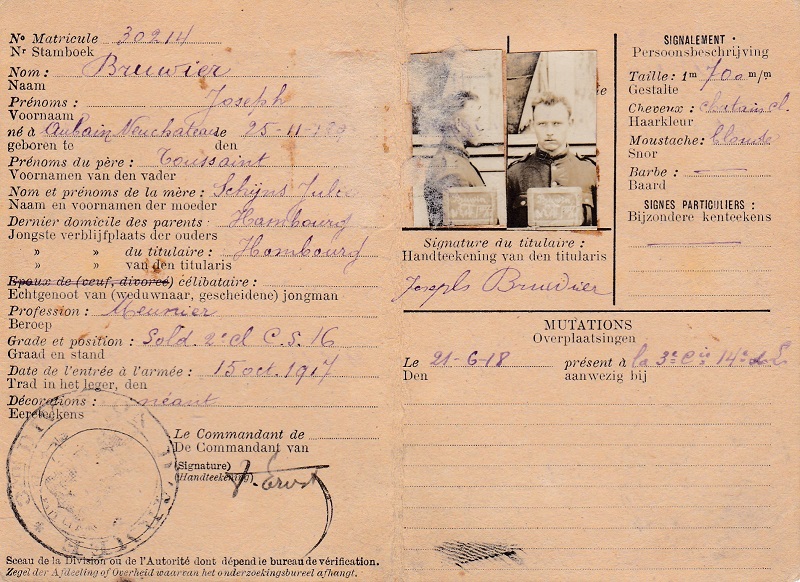 No Matricule 30214
Nr Stamboek
Nom : Bruwier
Naam
Prénoms : Joseph
Voornaam
né à Aubain Neuchateau le 25-11-
geboren te den
Prénoms du père : Toussaint
Voornamen van den vader
Nom et prénoms de la mère : Schijns Julie
Naam en voornamen der moeder
Dernier domicile des parents : Hombourg
Jongste verblijfplaats der ouders
» » du titulaire : Hombourg
» » van den titularis
Epoux de (veuf, divorcé) célibataire :
Echtgenoot van (weduwnaar, gescheidene) jongman
Profession : Meunier
Beroep
Grade et position : Sold. 2e cl C.S. 16
Graad en stand
Date de l'entrée à l'armée : 15 oct. 1917
Trad in het leger, den
Décorations : néant
Eereteekens
Le Commandant de
De Commandant van
(Signature)
(Handteekening)
Sceau de la Division ou de l'Autorité dont dépend le bureau de vérification.
Zegel der Afdeeling of Overheid waarvan het onderzoekingsbureel afhangt.
Signature du titulaire :
Handteekening van den titularis
Joseph Bruwier
SIGNALEMENT :
Persoonsbeschrijving
Taille : 1m 700 m/m
Gestalte
Cheveux : chatain cl.
Haarkleur
Moustache : blonde
Snor
Barbe :
Baard
SIGNES PARTICULIERS :
Bijzondere kenteekens
MUTATIONS
Overplaatsingen
Le 21-6-18 présent à la 3e Cie 14e
Den aanwezig bij